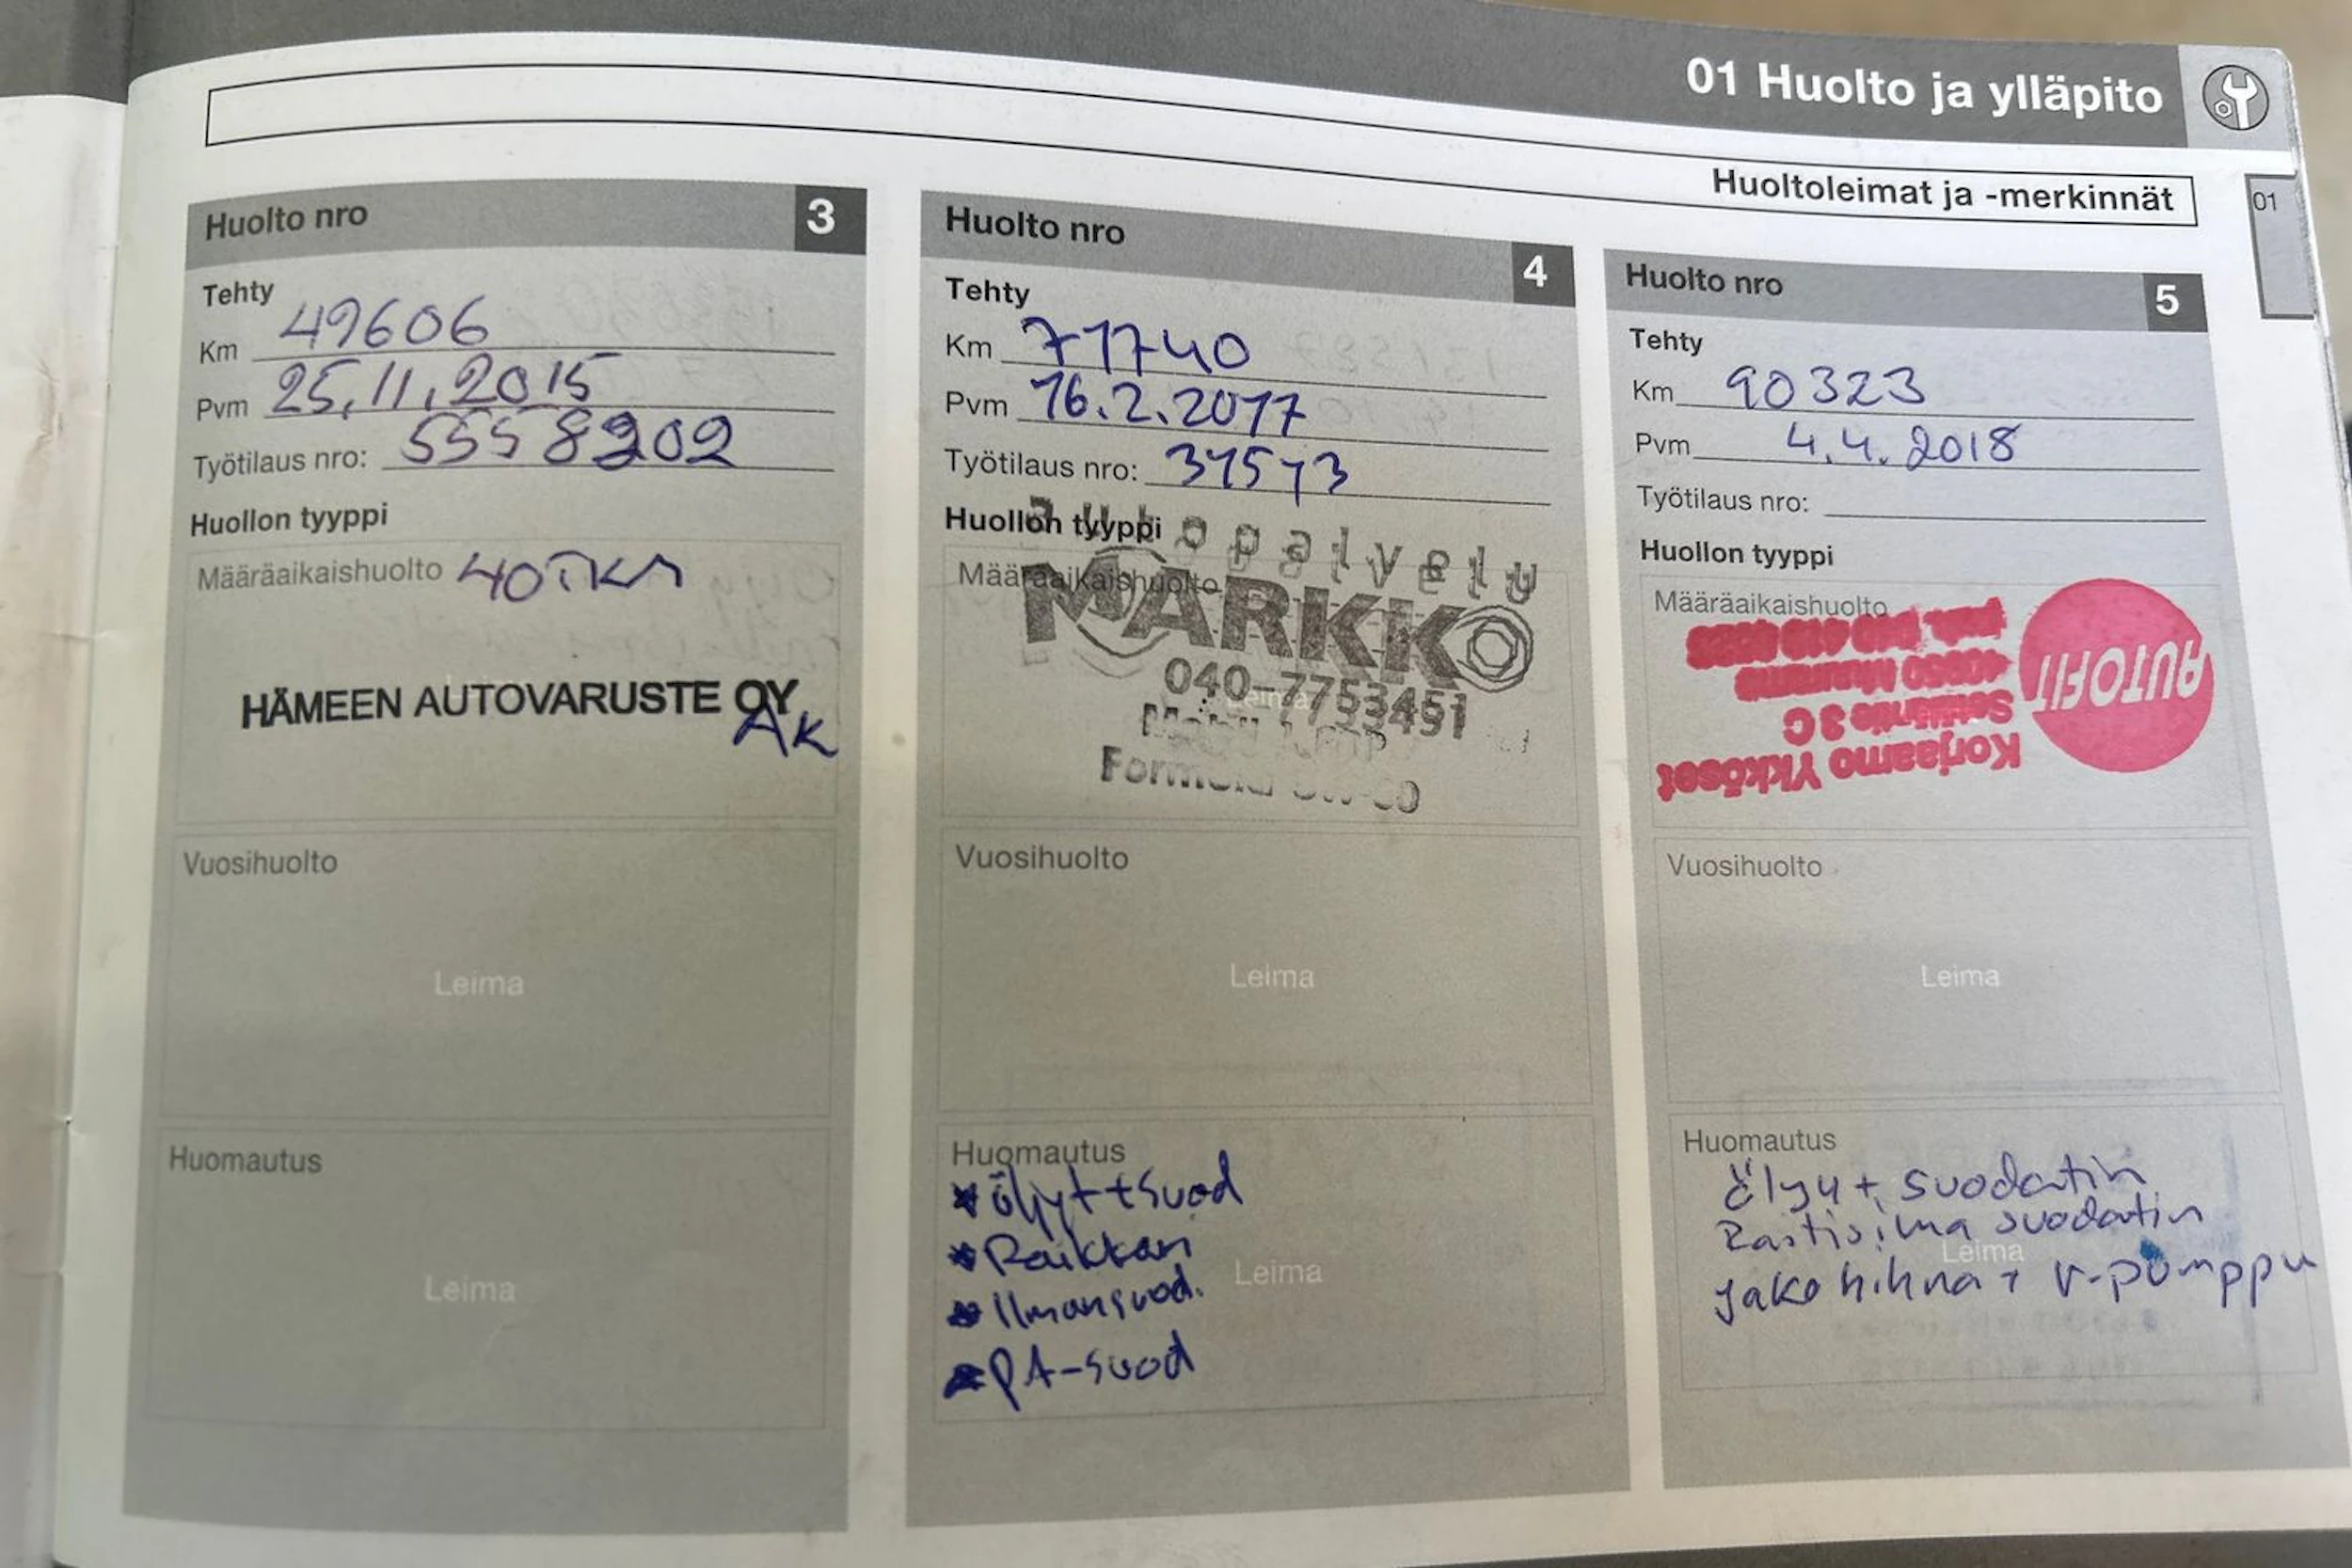 01 Huolto ja ylläpito
Huoltoleimat ja -merkinnät
01
Huolto nro 3
Tehty
Km 49606
Pvm 25.11.2015
Työtilaus nro: 5558202
Huollon tyyppi
Määräaikaishuolto 40TKM
HÄMEEN AUTOVARUSTE OY
AK
Vuosihuolto
Leima
Huomautus
Leima
Huolto nro 4
Tehty
Km 71740
Pvm 16.2.2017
Työtilaus nro: 31573
Huollon tyyppi
Autopalvelu
Määräaikaishuolto
MARKKO
040-7753451
Leima
Formula
Vuosihuolto
Leima
Huomautus
* öljyt+suod
* Raikkan
* Ilmansuod.
Leima
* PA-suod
Huolto nro 5
Tehty
Km 90323
Pvm 4.4.2018
Työtilaus nro:
Huollon tyyppi
Määräaikaishuolto
AUTOFIT
Korjaamo Ykköset
3 C
40950 Muurame
Vuosihuolto
Leima
Huomautus
Öljy + suodatin
Raitisilma suodatin
Leima
jakohihna + v-pumppu